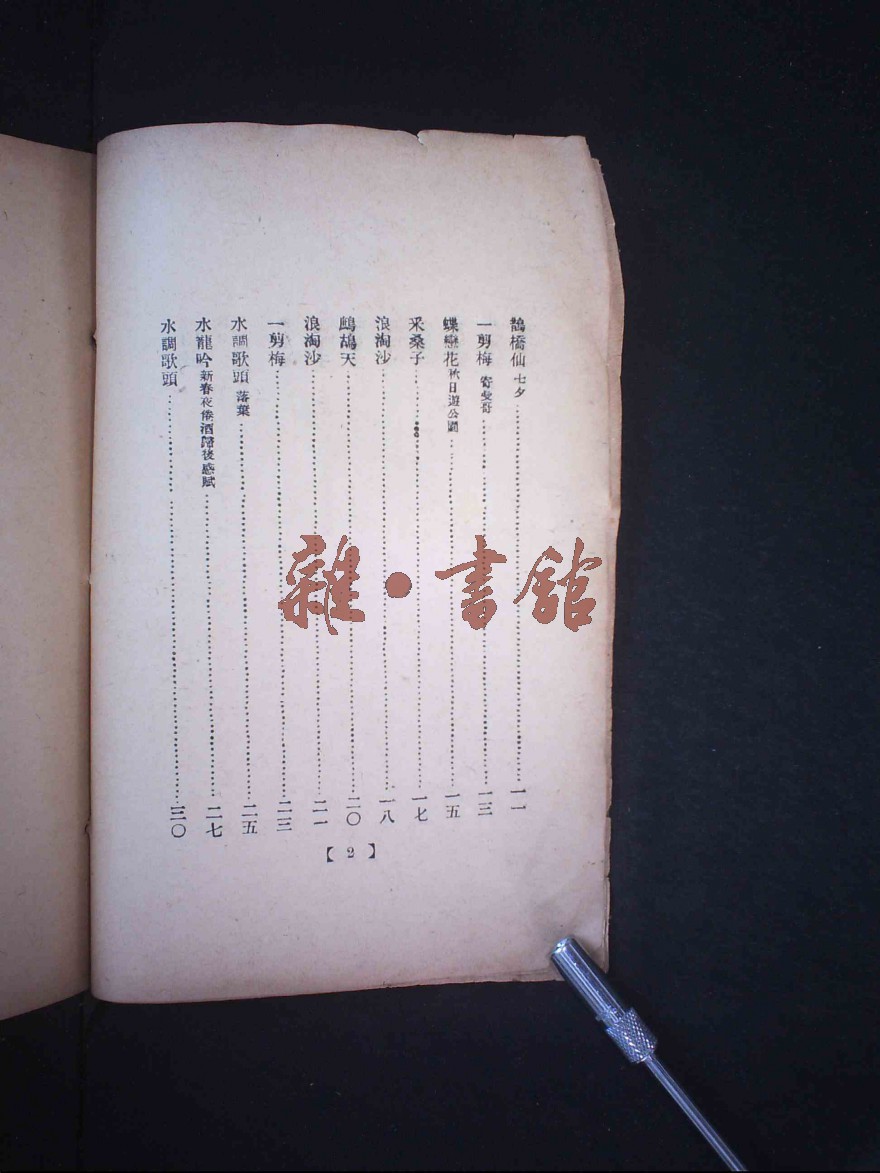 鵲橋仙 七夕……一一
一剪梅 寄 哥……一三
蝶戀花 秋日遊公園……一五
采桑子……一七
浪淘沙……一八
鷓鴣天……二〇
浪淘沙……二一
一剪梅……二三
水調歌頭 落葉……二五
水龍吟 新春夜倦酒歸後感賦……二七
水調歌頭……三〇
【2】
雜·書館